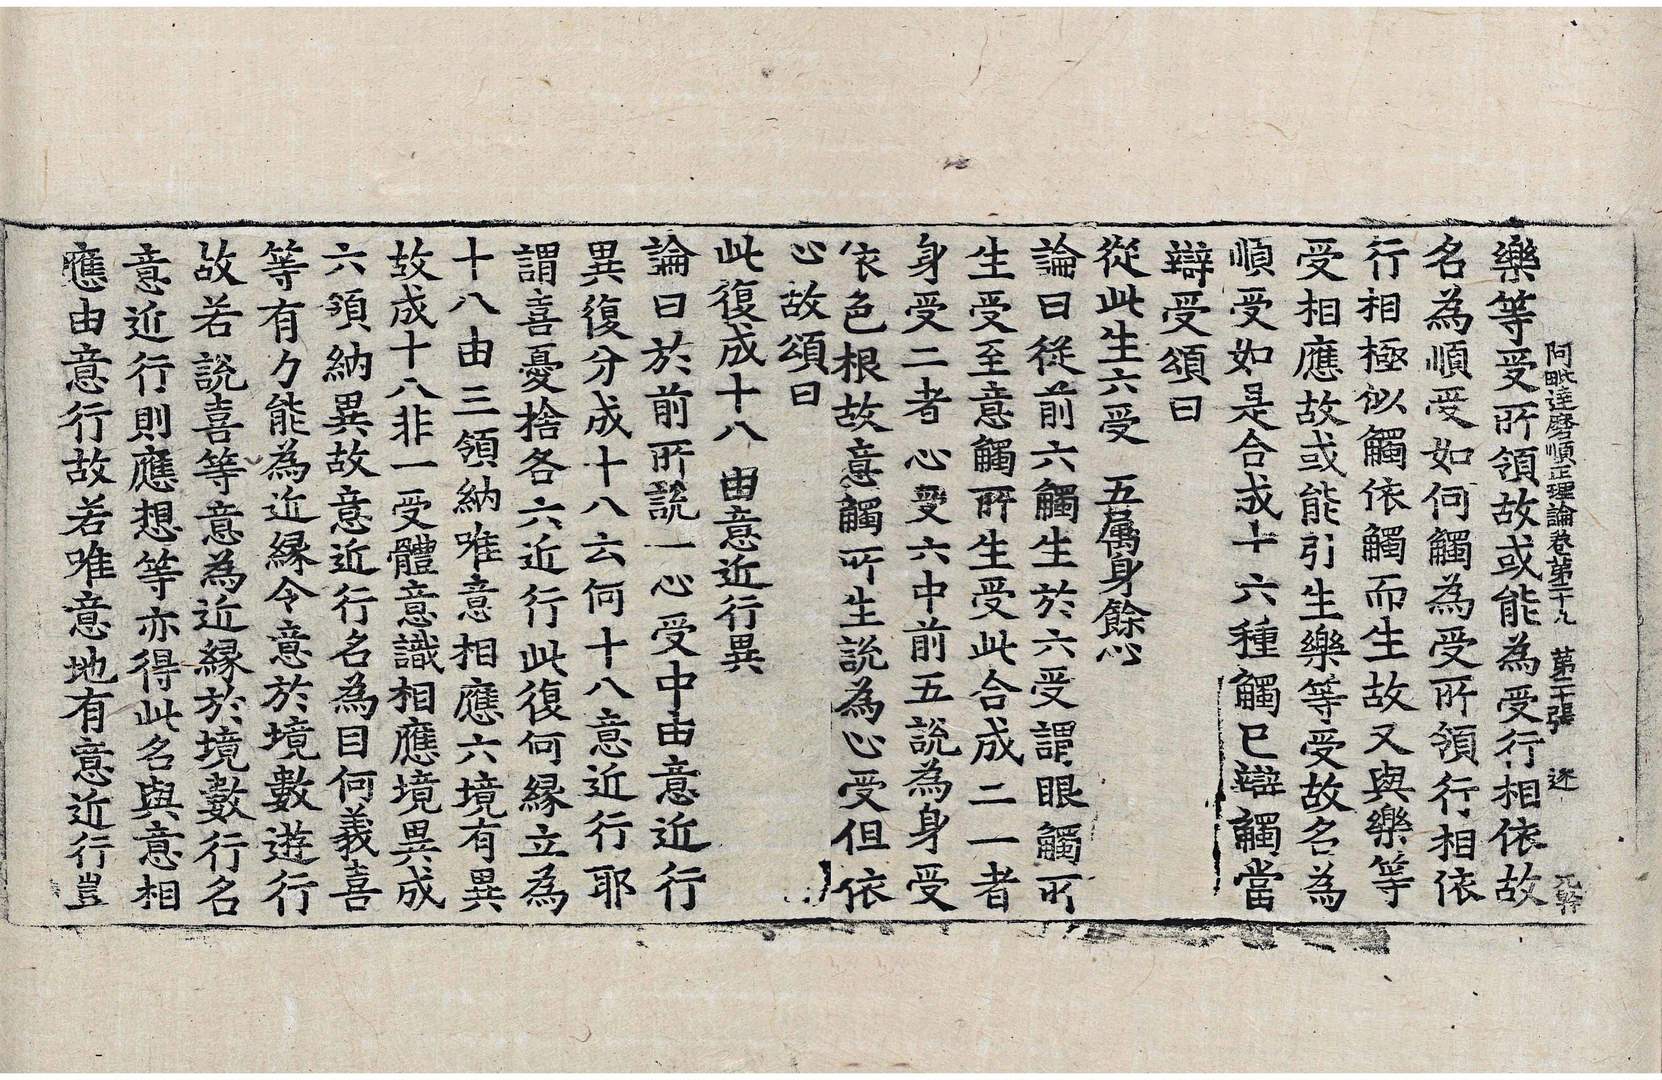 阿毗達磨順正理論卷第二十九 第二十張 逐 元幹
樂等受所領故或能為受行相依故
名為順受如何觸為受所領行相依
行相極似觸依觸而生故又與樂等
受相應故或能引生樂等受故名為
順受如是合成十六種觸已辯觸當
辯受頌曰
從此生六受 五屬身餘心
論曰從前六觸生於六受謂眼觸所
生受至意觸所生受此合成二一者
身受二者心受六中前五說為身受
依色根故意觸所生說為心受但依
心故頌曰
此復成十八 由意近行異
論曰於前所說一心受中由意近行
異復分成十八云何十八意近行耶
謂喜憂捨各六近行此復何緣立為
十八由三領納唯意相應六境有異
故成十八非一受體意識相應境異成
六領納異故意近行名為目何義喜
等有力能為近緣令意於境數遊行
故若說喜等意為近緣於境數行名
意近行則應想等亦得此名與意相
應由意行故若唯意地有意近行豈